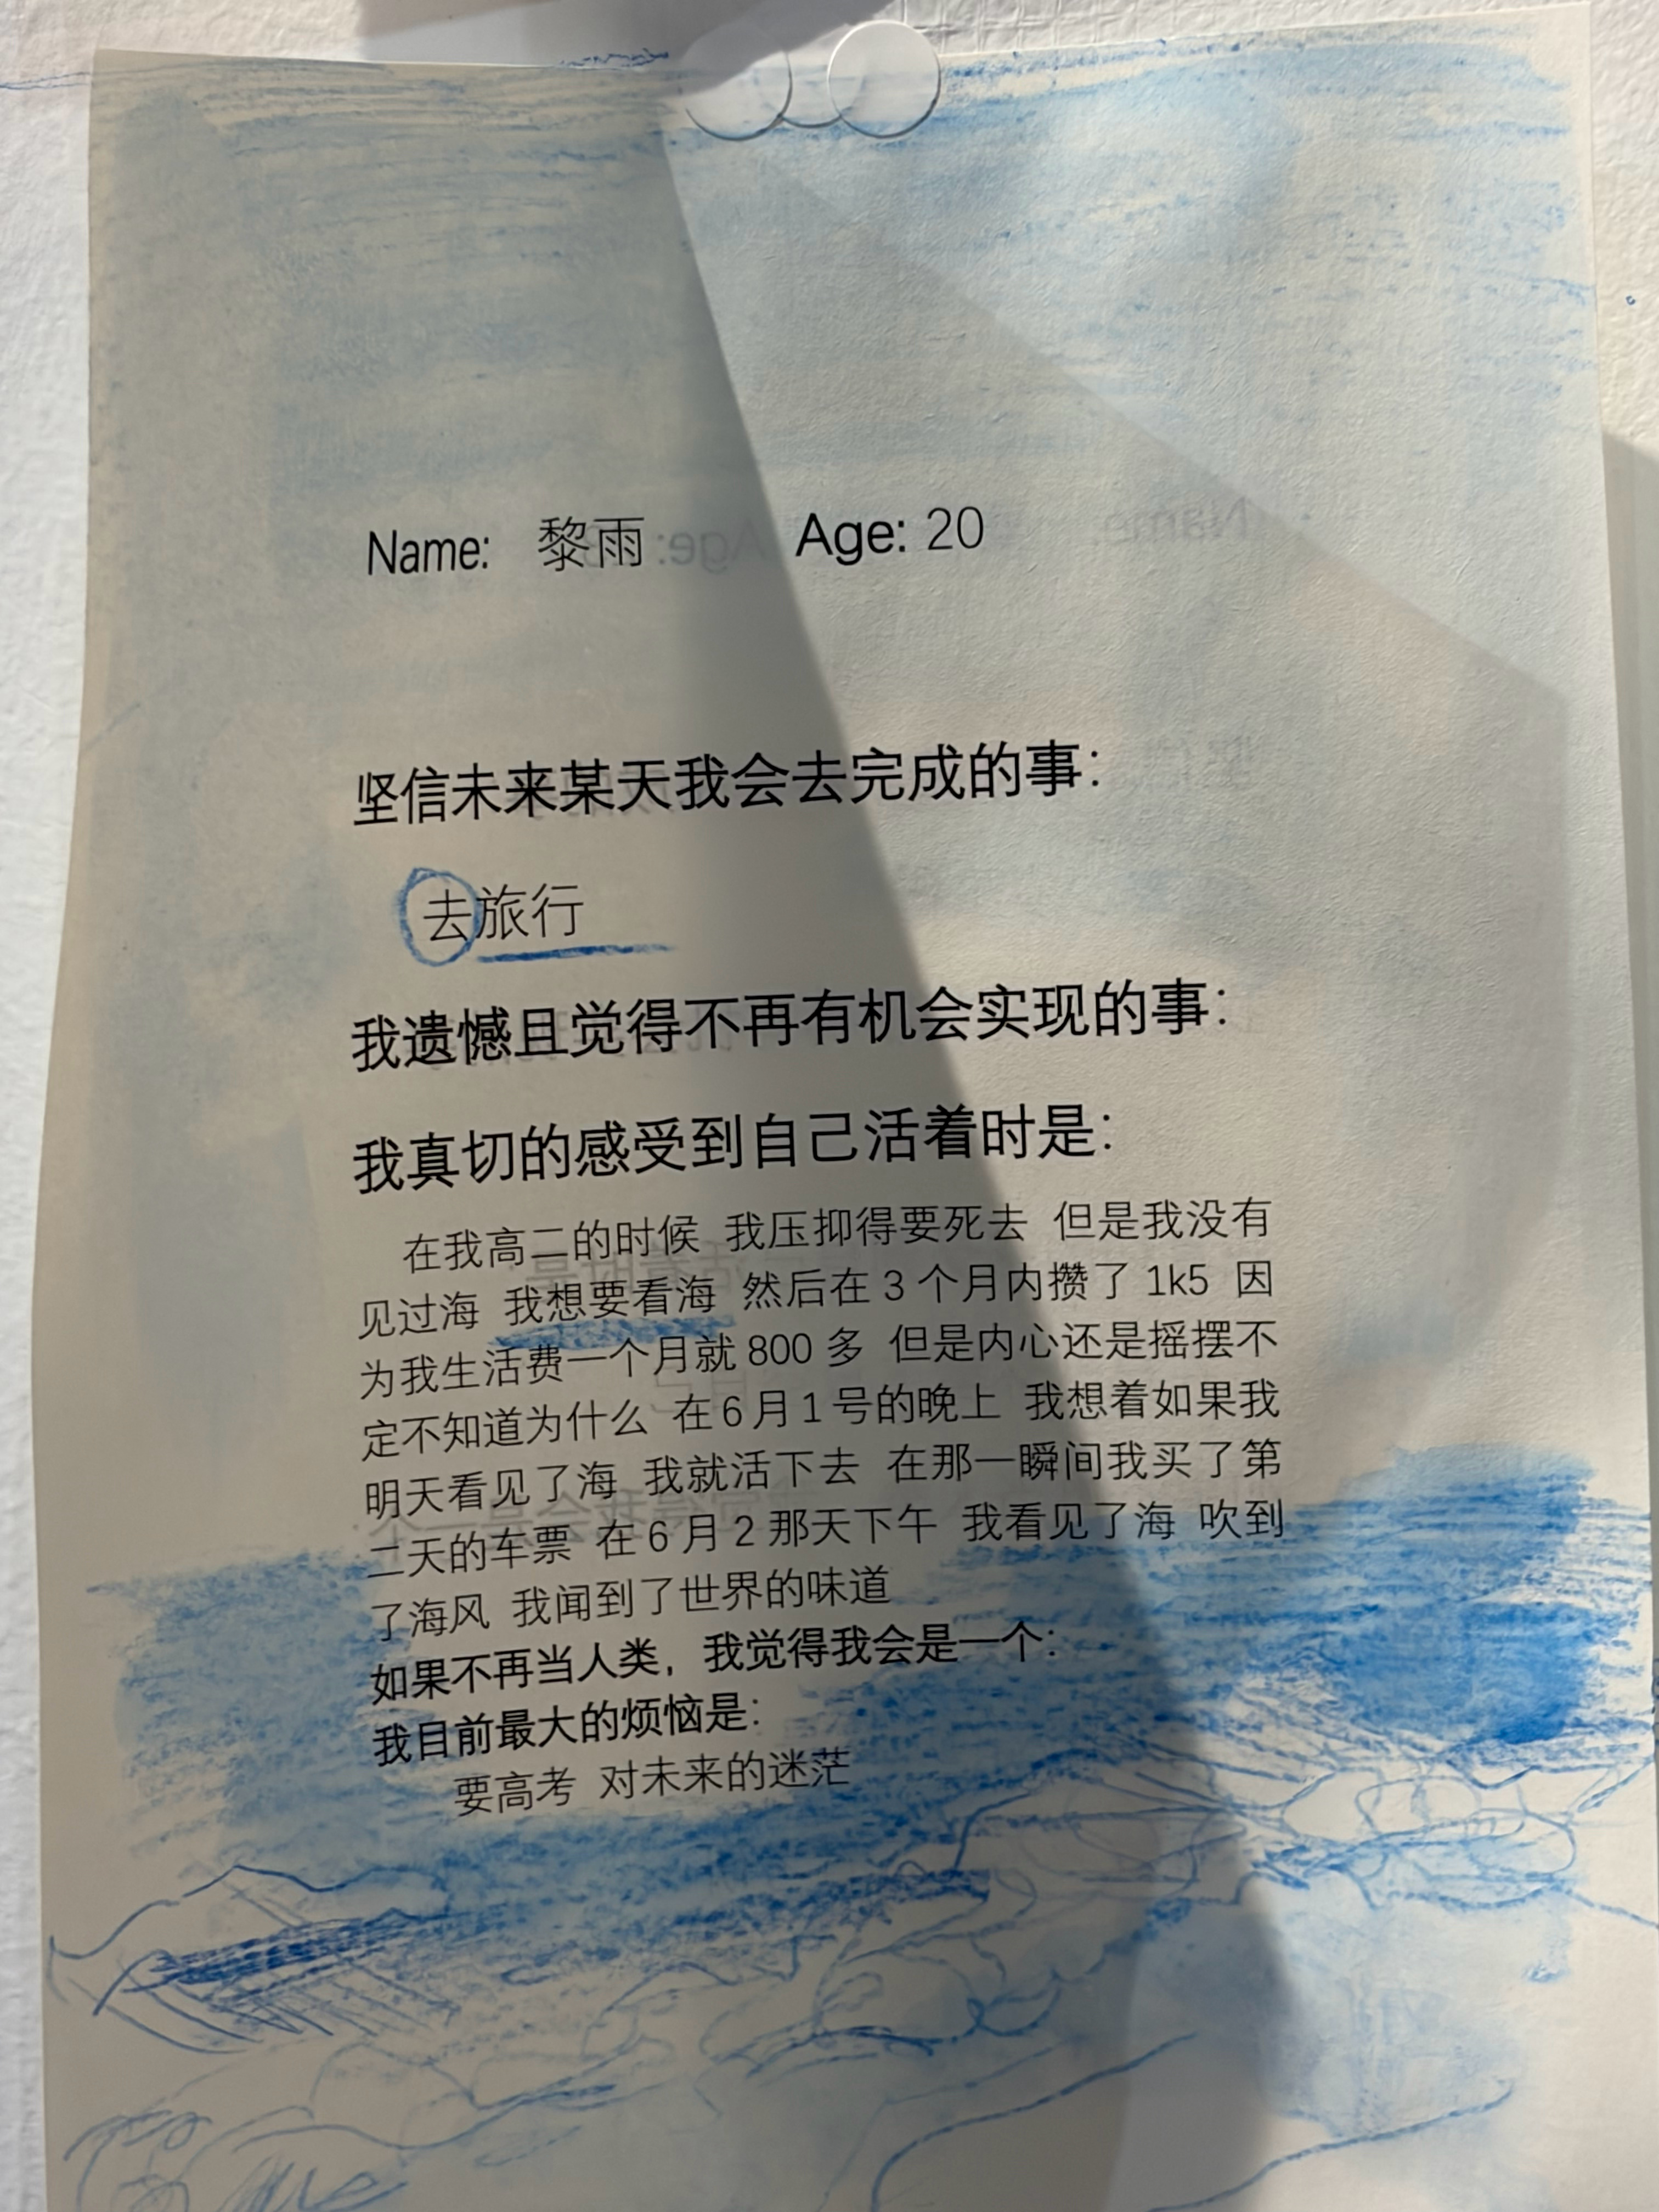 Name: 黎雨 Age: 20
坚信未来某天我会去完成的事：
去旅行
我遗憾且觉得不再有机会实现的事：
我真切的感受到自己活着时是：
在我高二的时候 我压抑得要死去 但是我没有
见过海 我想要看海 然后在 3 个月内攒了 1k5 因
为我生活费一个月就 800 多 但是内心还是摇摆不
定不知道为什么 在 6 月 1 号的晚上 我想着如果我
明天看见了海 我就活下去 在那一瞬间我买了第
二天的车票 在 6 月 2 那天下午 我看见了海 吹到
了海风 我闻到了世界的味道
如果不再当人类，我觉得我会是一个：
我目前最大的烦恼是：
要高考 对未来的迷茫